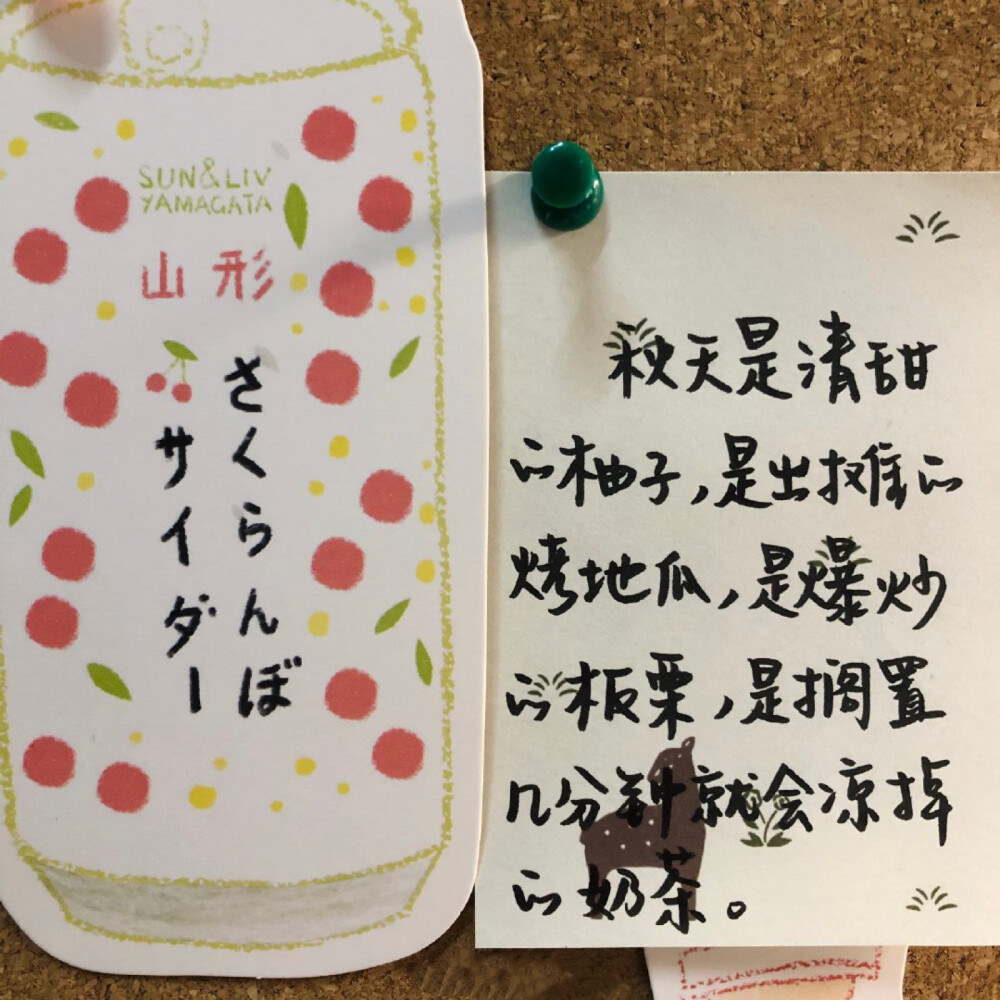 SUN&LIV
YAMAGATA
山形
さくらんぼ
サイダー
秋天是清甜
的柚子,是出摊的
烤地瓜,是爆炒
的板栗,是搁置
几分钟就会凉掉
的奶茶。